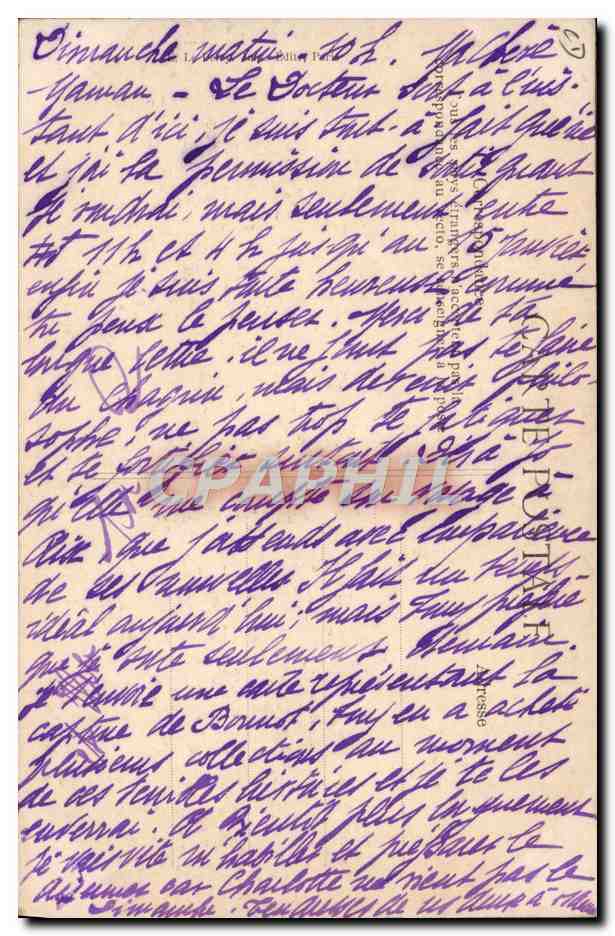 Dimanche matin 10h. Ma chère
Maman – Le Docteur sort à l'ins
tant d'ici, je suis tout-à-fait guérie
et j'ai la permission de sortir quand
je voudrai, mais seulement entre
11h et 4h jusqu'au 15 janvier
enfin je suis toute heureuse comme
tu peux le penser. Merci de ta
longue lettre. il ne faut pas te faire
du chagrin, mais devenir philo-
sophe, ne pas trop te fatiguer
et te
qu'elle du courage
que j'attends avec impatience
de ses nouvelles. Il fait un temps
idéal aujourd'hui, mais Suzy préfère
que je sorte seulement demain.
Je t'envoie une carte représentant la
capture de Bonnot. Suzy en a acheté
plusieurs collections au moment
de ces terribles histoires et je te les
enverrai. A bientôt plus longuement
je vais vite m'habiller et préparer le
déjeuner car Charlotte ne vient pas le
Dimanche. Tendresses de nous deux à
CARTE POSTALE
Correspondance
Adresse
Tous les pays étrangers n'acceptent pas la
correspondance au recto, se renseigner à la poste
Edit. Paris
CPAPHIL